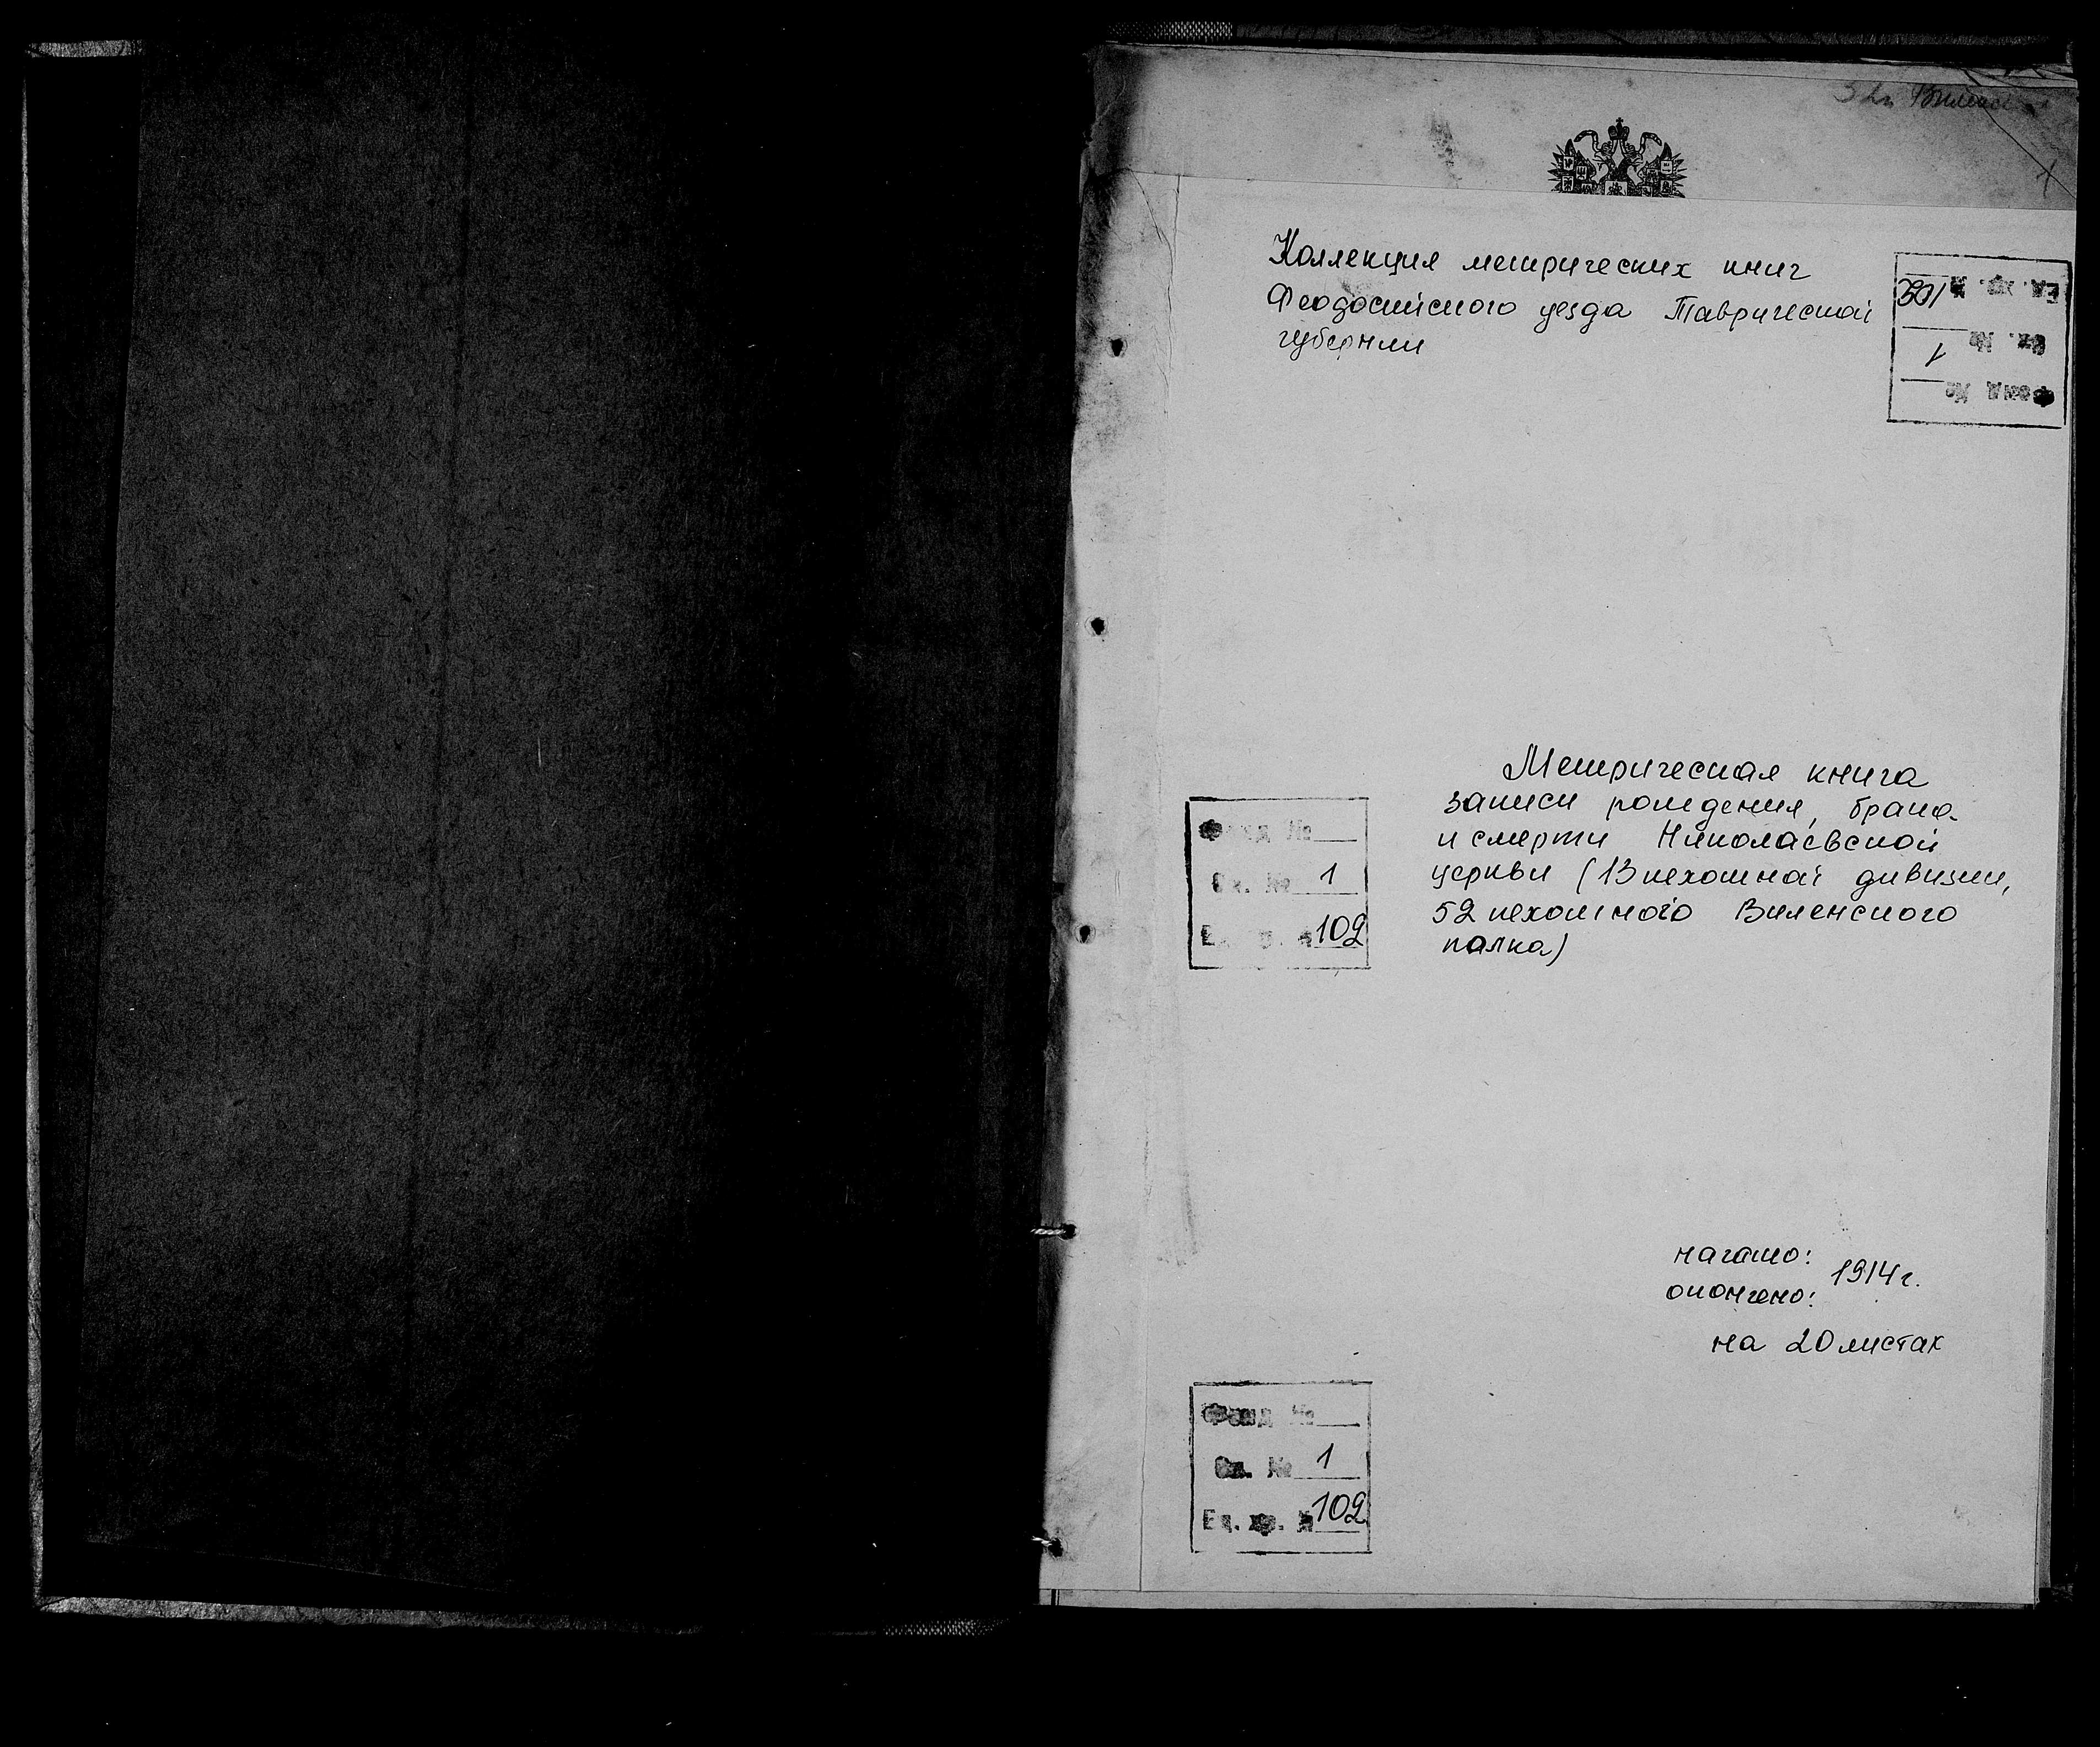 Коллекция метрических книг
Феодосийского уезда Таврической
губернии
Ед. хр. № 102
Оп. № 1
Фонд №
Метрическая книга
записи рождения, брака
и смерти Николаевской
церкви (13 пехотной дивизии,
52 пехотного Виленского
полка)
Фонд №
Оп. № 1
Ед. хр. № 102
начато:
окончено: 1914 г.
на 20 листах
Фонд №
Оп. № 1
Ед. хр. № 102